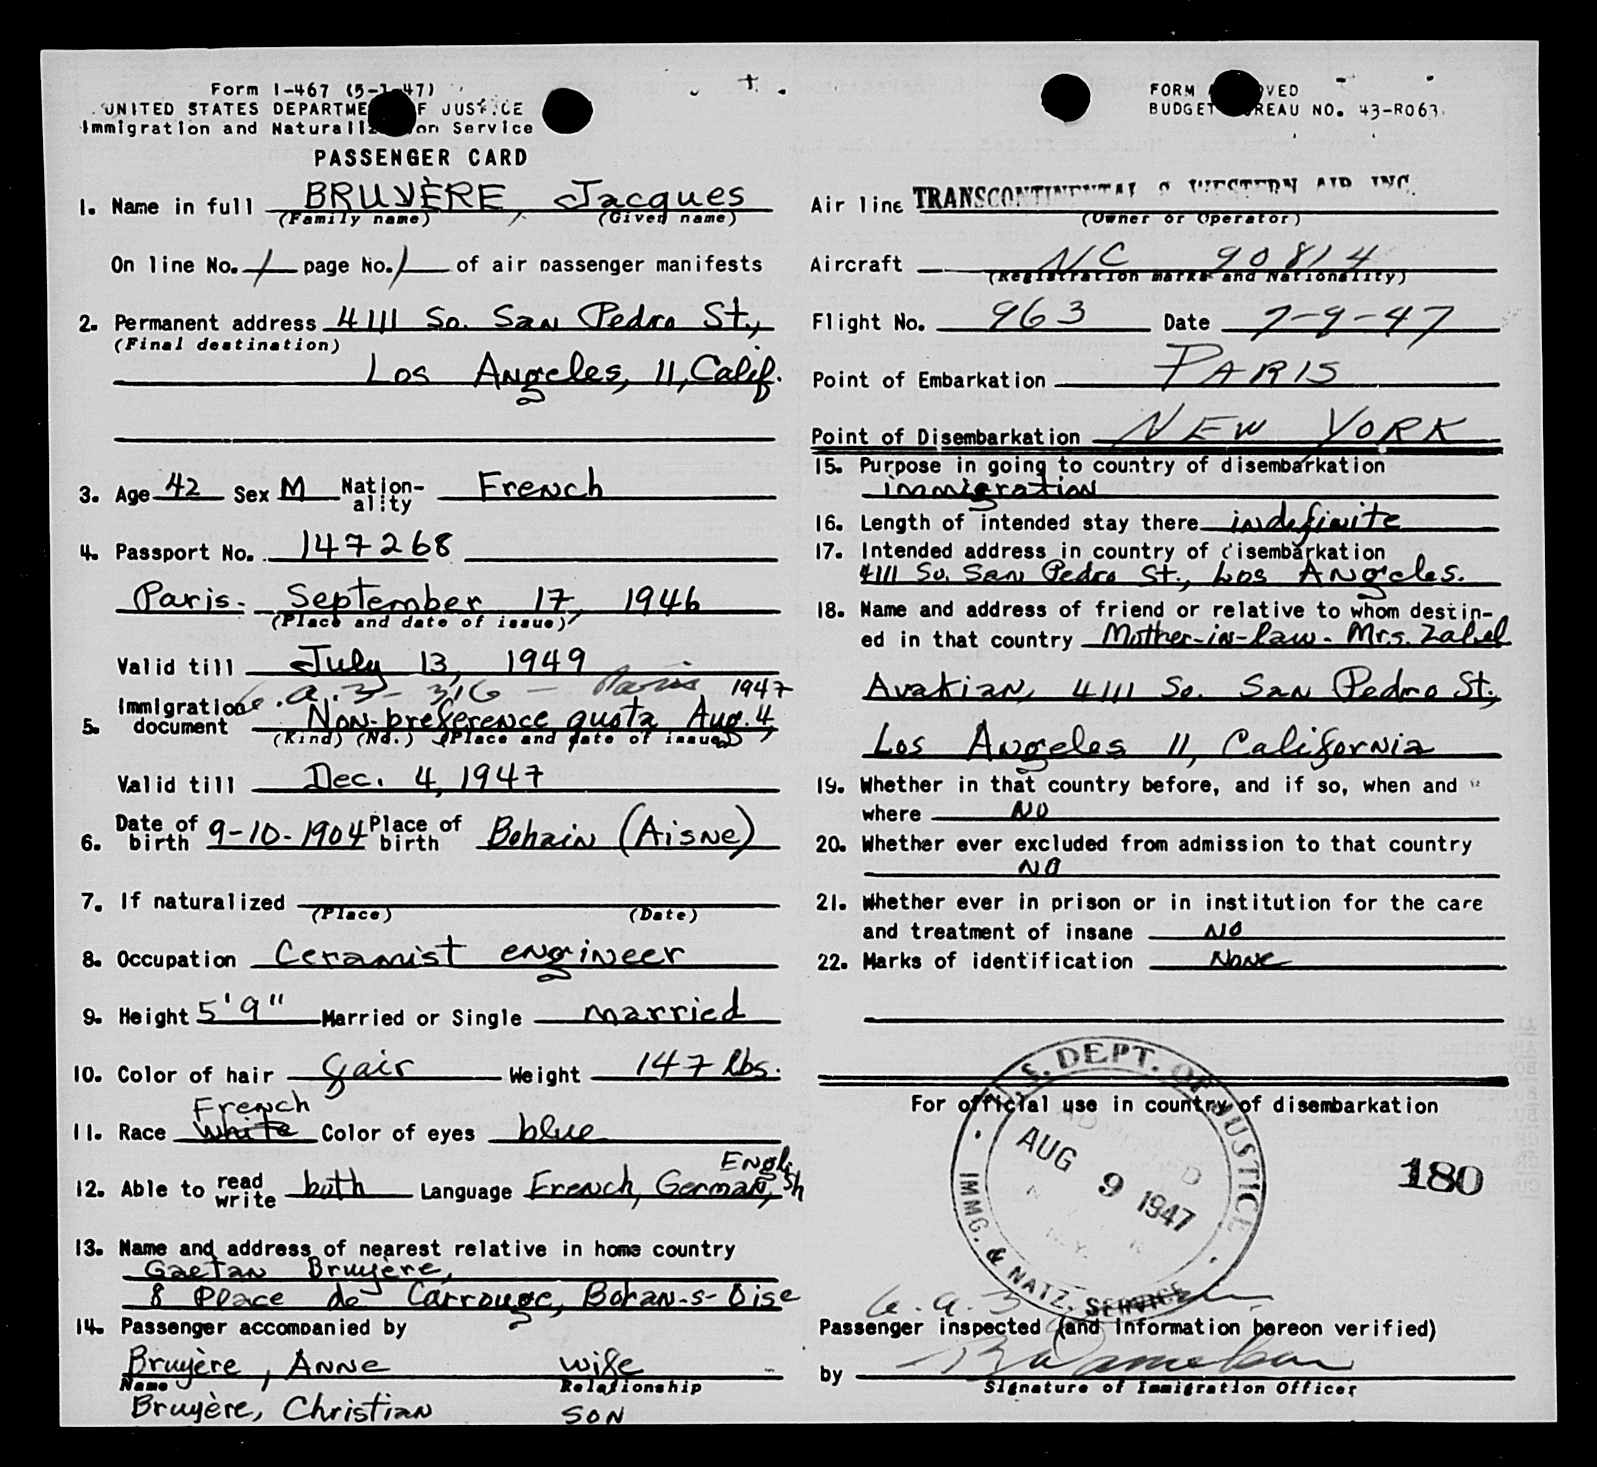 Form I-467 (5-1-47)
UNITED STATES DEPARTMENT OF JUSTICE
Immigration and Naturalization Service
PASSENGER CARD
1. Name in full BRUYÈRE, Jacques
(Family name) (Given name)
On line No. 1 page No. 1 of air passenger manifests
2. Permanent address 4111 So. San Pedro St.,
(Final destination)
Los Angeles, 11, Calif.
3. Age 42 Sex M Nation-ality French
4. Passport No. 147268
Paris - September 17, 1946
(Place and date of issue)
Valid till July 13, 1949
.a.3 - 316 - Paris 1947
5. Immigration document Non-preference quota Aug. 4,
(Kind) (No.) (Place and date of issue)
Valid till Dec. 4, 1947
6. Date of birth 9-10-1904 Place of birth Bohain (Aisne)
7. If naturalized
(Place) (Date)
8. Occupation Ceramist engineer
9. Height 5'9" Married or Single married
10. Color of hair Weight 147 lbs.
French
11. Race White Color of eyes blue
12. Able to read write both Language French, German, English
13. Name and address of nearest relative in home country
Gaetan Bruyère,
8 Place de Carrouge, Boran-s-Oise
14. Passenger accompanied by
Bruyère, Anne wife
Name Relationship
Bruyère, Christian son
FORM APPROVED
BUDGET BUREAU NO. 43-R063.
Air line TRANSCONTINENTAL & WESTERN AIR INC.
(Owner or Operator)
Aircraft NC 90814
(Registration marks and Nationality)
Flight No. 963 Date 7-9-47
Point of Embarkation PARIS
Point of Disembarkation NEW YORK
15. Purpose in going to country of disembarkation
immigration
16. Length of intended stay there indefinite
17. Intended address in country of disembarkation
4111 So. San Pedro St., Los Angeles.
18. Name and address of friend or relative to whom destin-
ed in that country Mother-in-law - Mrs. Zabel
Avakian, 4111 So. San Pedro St.,
Los Angeles 11, California
19. Whether in that country before, and if so, when and
where No
20. Whether ever excluded from admission to that country
No
21. Whether ever in prison or in institution for the care
and treatment of insane No
22. Marks of identification None
For official use in country of disembarkation
U.S. DEPT. OF JUSTICE
IMMG. & NATZ. SERVICE
AUG 9 1947
N.Y.
180
Passenger inspected (and information hereon verified)
by
Signature of Immigration Officer